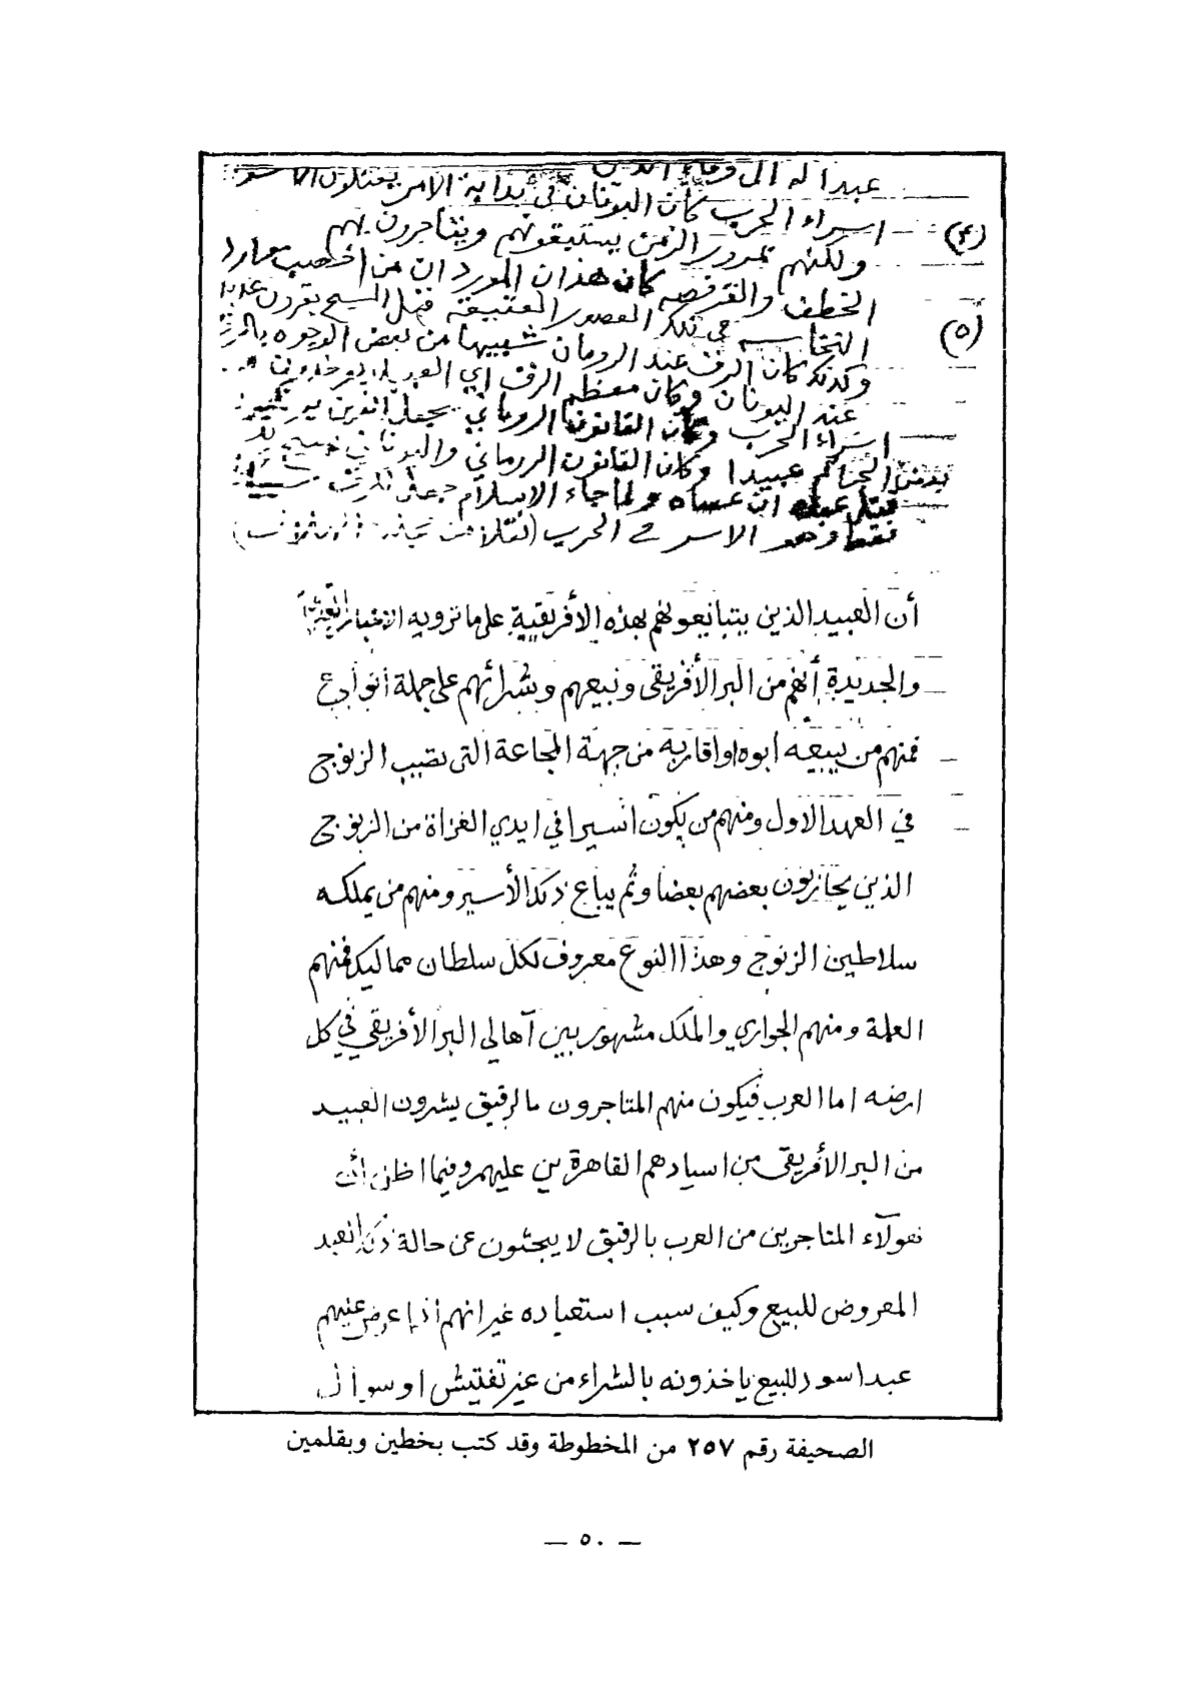 عبدا له الى وفاء الدين
اسراء الحرب كان اليونان في بداية الامر يقتلون
(٤) ولكنهم بمرور الزمن يستبقونهم ويتاجرون بهم
الخطف والقرصنه كان هذان الموردان من اخصب موارد
(٥) النخاسه في تلك العصور العتيقة قبل المسيح بقرون
وكذلك كان الرق عند الرومان شبيها من بعض الوجوه بالرق
عند اليونان وكان معظم الرق اي العبيد يوخذون من
اسراء الحرب وكان القانون الروماني يجعل
بعض الجرائم عبيدا وكان القانون الروماني واليوناني
بقتل عبده ان عصاه ولما جاء الاسلام جعل للرق سببا
فقط وهو الاسر في الحرب (نقلا من
أن العبيد الذين يتبايعونهم بهذه الأفريقية على ما ترويه الاخبار القديمة
والجديدة أنهم من البر الأفريقى ونبيعهم وشرائهم على جملة أنواع
فمنهم من يبيعه ابوه او اقاربه من جهة المجاعة التى تصيب الزنوج
في العهد الاول ومنهم من يكون اسيرا في ايدي الغزاة من الزنوج
الذين يحاربون بعضهم بعضا وثم يباع ذلك الأسير ومنهم من يملكه
سلاطين الزنوج وهذا النوع معروف لكل سلطان مماليك فمنهم
الغلمة ومنهم الجواري والملك مشهور بين آهالي البر الأفريقي في كل
ارضه اما العرب فيكون منهم المتاجرون بالرقيق يشرون العبيد
من البر الأفريقى من اسيادهم القاهرين عليهم وفيما اظن أن
هولآء المتاجرين من العرب بالرقيق لا يبحثون عن حالة ذلك العبد
المعروض للبيع وكيف سبب استعباده غير انهم اذا عرض عليهم
عبد اسود للبيع ياخذونه بالشراء من غير تفتيش او سوآل
الصحيفة رقم ٢٥٧ من المخطوطة وقد كتب بخطين وبقلمين
— ٥٠ —